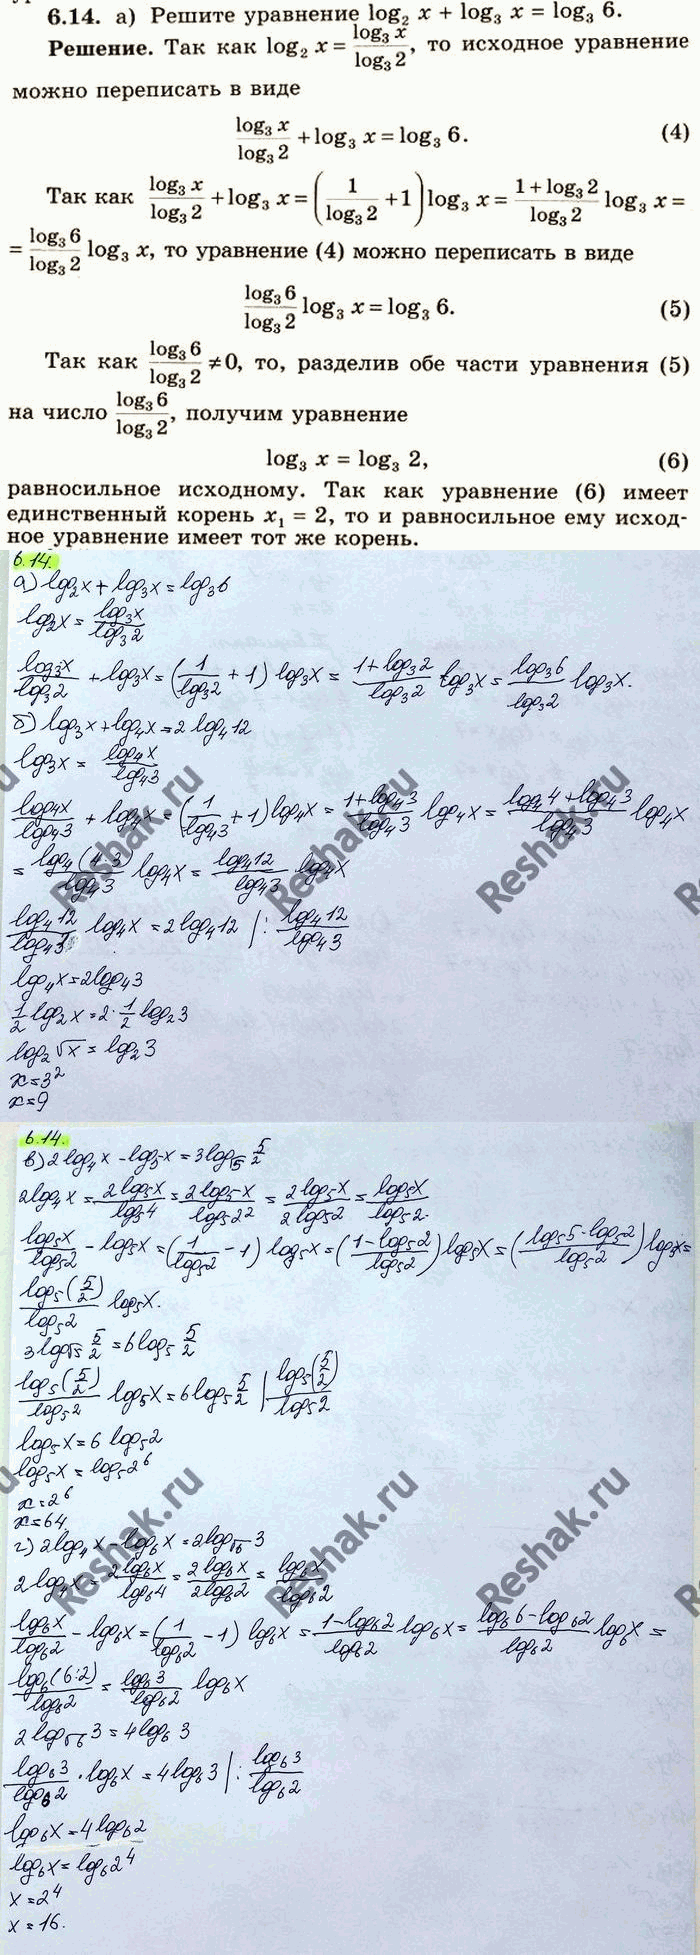 6.14. а) Решите уравнение log₂ x + log₃ x = log₃ 6.
Решение. Так как log₂ x = log₃ x / log₃ 2, то исходное уравнение
можно переписать в виде
log₃ x / log₃ 2 + log₃ x = log₃ 6. (4)
Так как log₃ x / log₃ 2 + log₃ x = (1 / log₃ 2 + 1) log₃ x = (1 + log₃ 2) / log₃ 2 log₃ x =
= log₃ 6 / log₃ 2 log₃ x, то уравнение (4) можно переписать в виде
log₃ 6 / log₃ 2 log₃ x = log₃ 6. (5)
Так как log₃ 6 / log₃ 2 ≠ 0, то, разделив обе части уравнения (5)
на число log₃ 6 / log₃ 2, получим уравнение
log₃ x = log₃ 2, (6)
равносильное исходному. Так как уравнение (6) имеет
единственный корень x₁ = 2, то и равносильное ему исход-
ное уравнение имеет тот же корень.
6.14.
а) log₂x + log₃x = log₃6
log₂x = log₃x / log₃2
log₃x / log₃2 + log₃x = (1 / log₃2 + 1) log₃x = (1 + log₃2) / log₃2 log₃x = log₃6 / log₃2 log₃x.
б) log₃x + log₄x = 2 log₄12
log₃x = log₄x / log₄3
log₄x / log₄3 + log₄x = (1 / log₄3 + 1) log₄x = (1 + log₄3) / log₄3 log₄x = (log₄4 + log₄3) / log₄3 log₄x
= log₄(4·3) / log₄3 log₄x = log₄12 / log₄3 log₄x
log₄12 / log₄3 log₄x = 2 log₄12 | : log₄12 / log₄3
log₄x = 2 log₄3
1/2 log₂x = 2 · 1/2 log₂3
log₂√x = log₂3
x = 3²
x = 9
6.14.
в) 2 log₄x - log₅x = 3 log_√5 5/2
2 log₄x = 2 log₅x / log₅4 = 2 log₅x / log₅2² = 2 log₅x / 2 log₅2 = log₅x / log₅2.
log₅x / log₅2 - log₅x = (1 / log₅2 - 1) log₅x = ((1 - log₅2) / log₅2) log₅x = ((log₅5 - log₅2) / log₅2) log₅x =
log₅(5/2) / log₅2 log₅x.
3 log_√5 5/2 = 6 log₅ 5/2
log₅(5/2) / log₅2 log₅x = 6 log₅ 5/2 | log₅(5/2) / log₅2
log₅x = 6 log₅2
log₅x = log₅2⁶
x = 2⁶
x = 64.
г) 2 log₄x - log₆x = 2 log_√6 3
2 log₄x = 2 log₆x / log₆4 = 2 log₆x / 2 log₆2 = log₆x / log₆2
log₆x / log₆2 - log₆x = (1 / log₆2 - 1) log₆x = (1 - log₆2) / log₆2 log₆x = (log₆6 - log₆2) / log₆2 log₆x =
log₆(6:2) / log₆2 = log₆3 / log₆2 log₆x
2 log_√6 3 = 4 log₆3
log₆3 / log₆2 · log₆x = 4 log₆3 | : log₆3 / log₆2
log₆x = 4 log₆2
log₆x = log₆2⁴
x = 2⁴
x = 16.
Reshak.ru
Reshak.ru
Reshak.ru
Reshak.ru
Reshak.ru
Reshak.ru